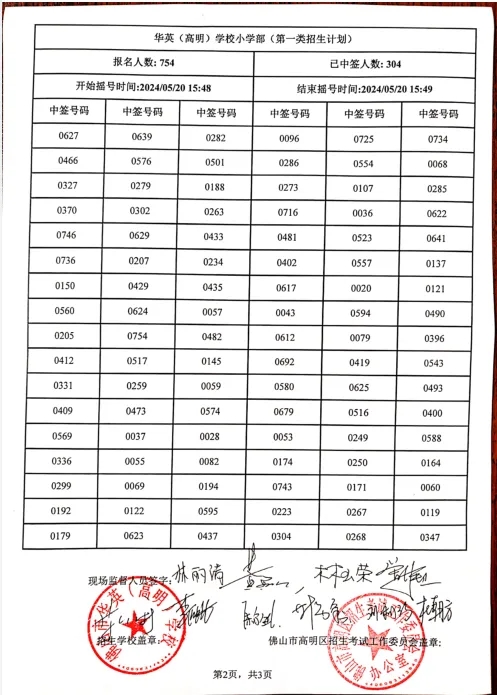 华英（高明）学校小学部（第一类招生计划）
报名人数: 754 已中签人数: 304
开始摇号时间:2024/05/20 15:48 结束摇号时间:2024/05/20 15:49
中签号码 中签号码 中签号码 中签号码 中签号码 中签号码
0627 0639 0282 0096 0725 0734
0466 0576 0501 0286 0554 0068
0327 0279 0188 0273 0107 0285
0370 0302 0263 0716 0036 0622
0746 0629 0433 0481 0523 0641
0736 0207 0234 0402 0557 0137
0150 0429 0435 0617 0020 0121
0560 0624 0057 0043 0594 0490
0205 0754 0482 0612 0079 0396
0412 0517 0145 0692 0419 0543
0331 0259 0059 0580 0625 0493
0409 0473 0574 0679 0516 0400
0569 0037 0028 0053 0249 0588
0336 0055 0082 0174 0250 0164
0299 0069 0194 0743 0171 0060
0192 0122 0595 0223 0267 0119
0179 0623 0437 0304 0268 0347
现场监督人员签字: 林丽清
招生学校盖章: 佛山市高明区招生考试工作委员会盖章:
办公室
第2页，共3页